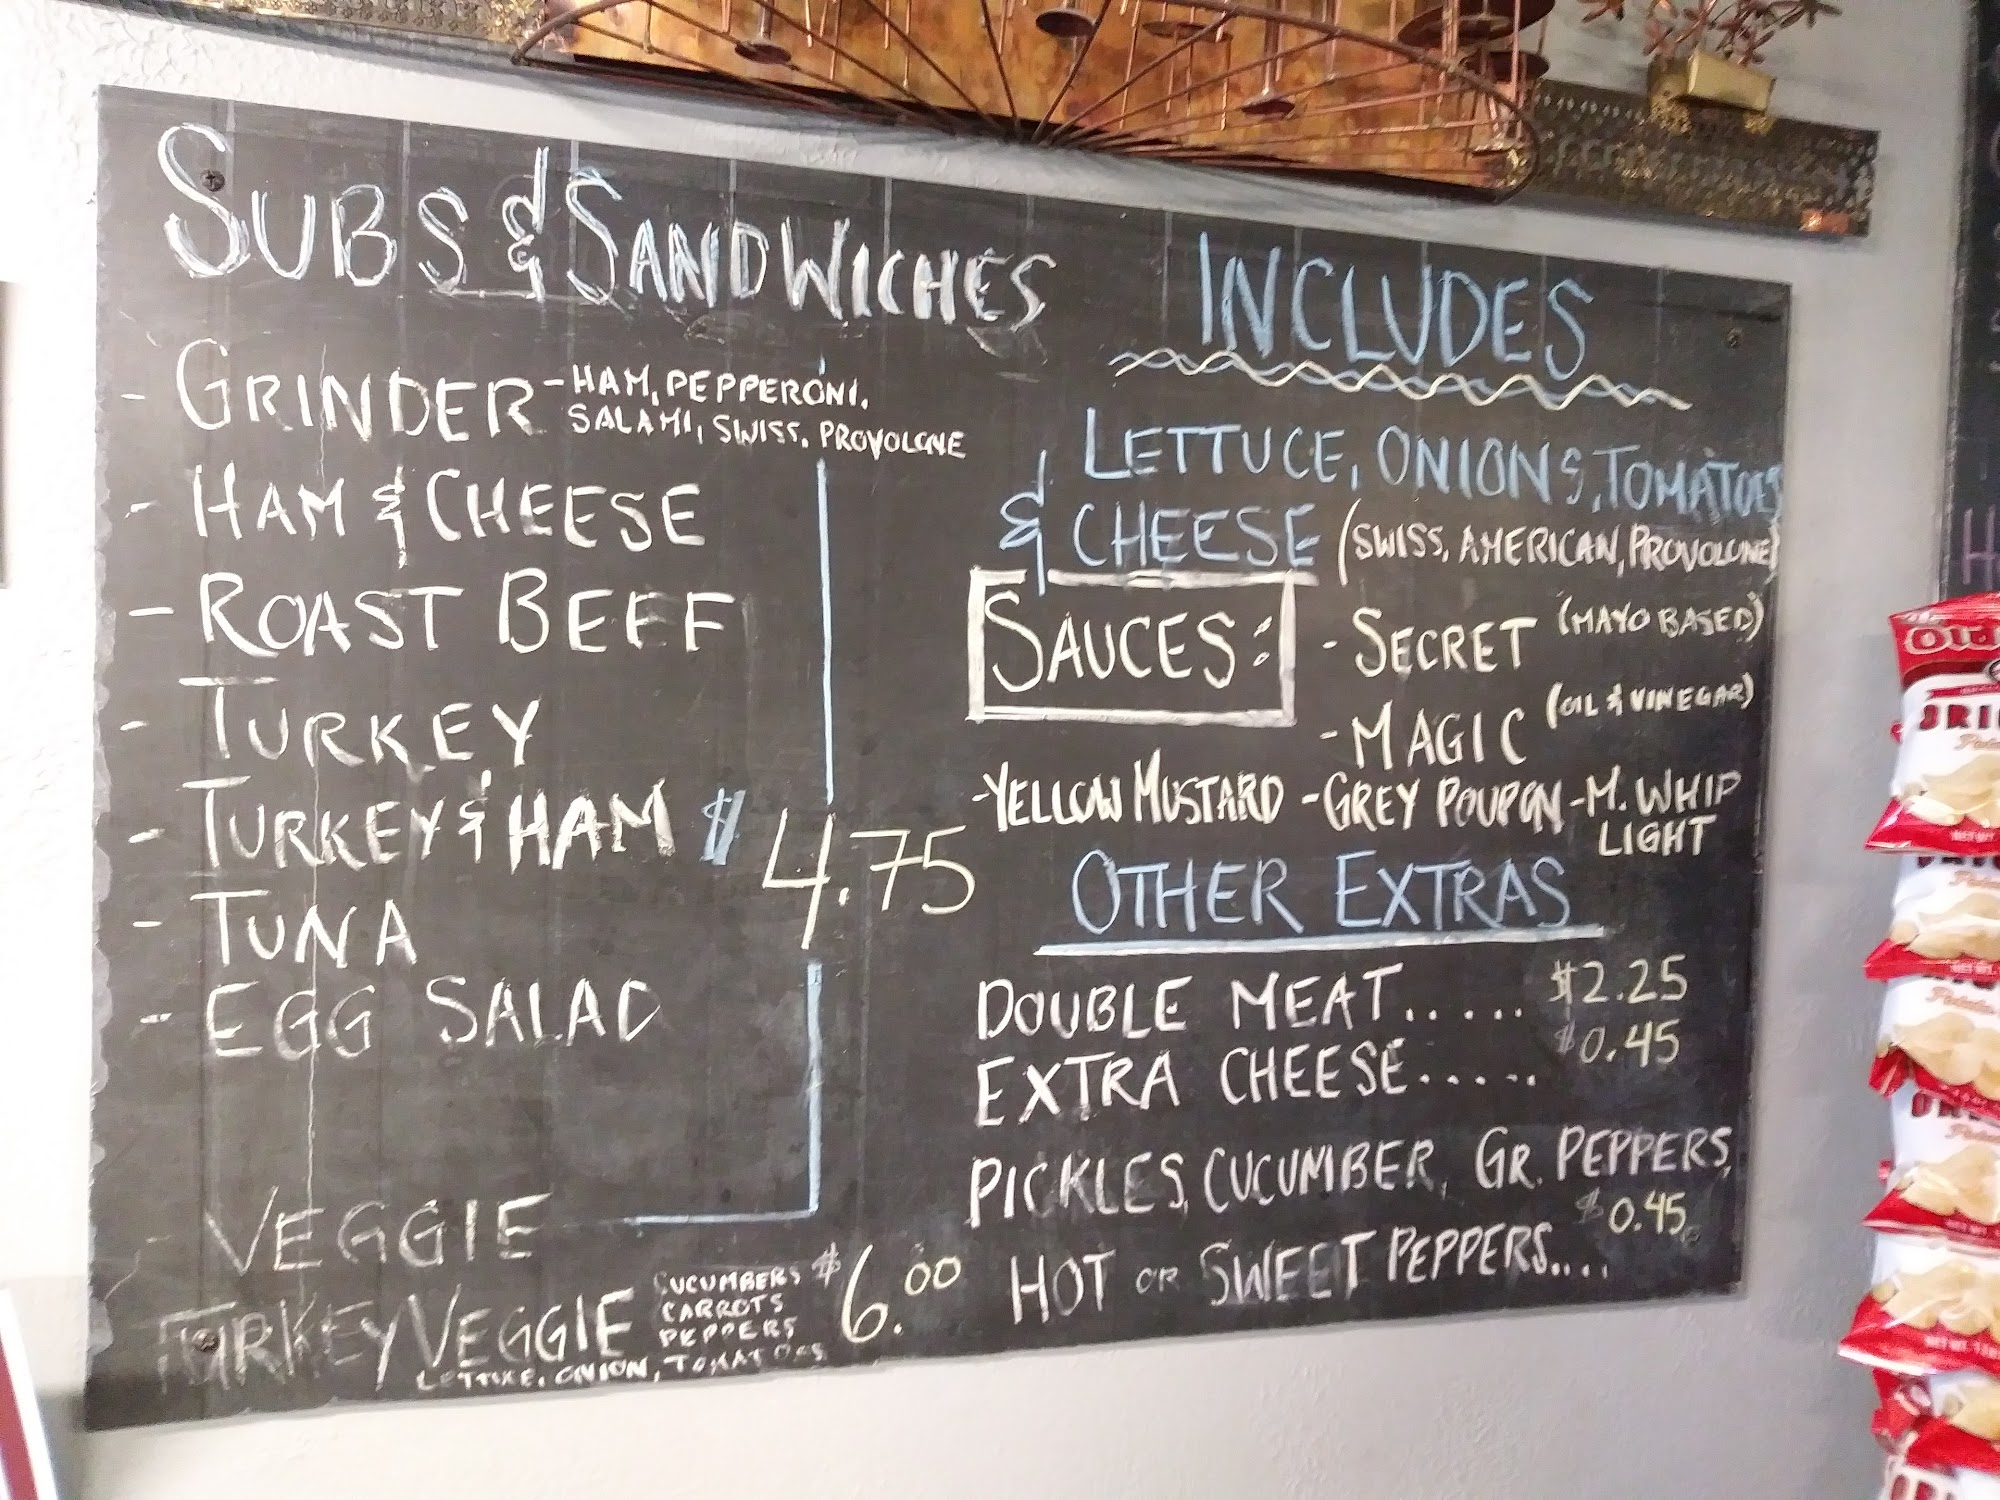 SUBS & SANDWICHES
- GRINDER - HAM, PEPPERONI,
SALAMI, SWISS, PROVOLONE
- HAM & CHEESE
- ROAST BEEF
- TURKEY
- TURKEY & HAM $4.75
- TUNA
- EGG SALAD
- VEGGIE
TURKEY VEGGIE
CUCUMBERS
CARROTS
PEPPERS
LETTUCE, ONION, TOMATOES
$6.00
INCLUDES
LETTUCE, ONIONS, TOMATOES
& CHEESE (SWISS, AMERICAN, PROVOLONE)
SAUCES: - SECRET (MAYO BASED)
- MAGIC (OIL & VINEGAR)
- YELLOW MUSTARD - GREY POUPON - M. WHIP
LIGHT
OTHER EXTRAS
DOUBLE MEAT..... $2.25
EXTRA CHEESE..... $0.45
PICKLES, CUCUMBER, GR. PEPPERS,
HOT OR SWEET PEPPERS.... $0.45
Old